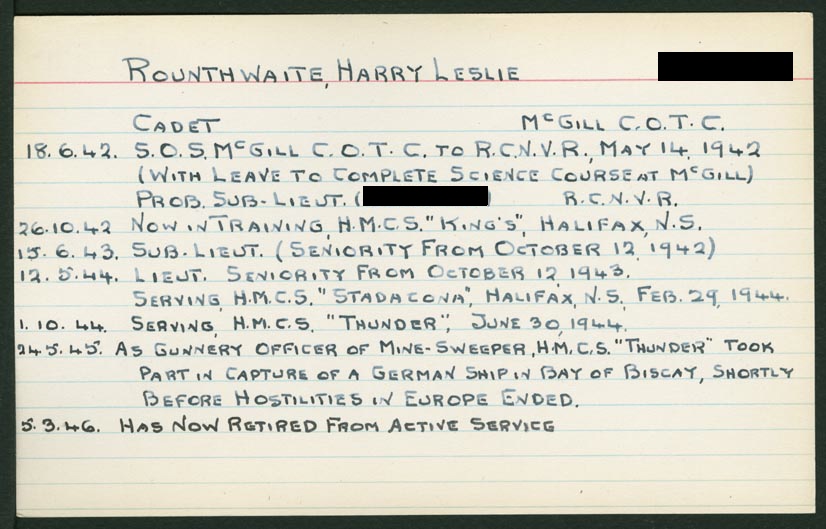 ROUNTHWAITE, HARRY LESLIE
CADET McGILL C.O.T.C.
18.6.42. S.O.S. McGILL C.O.T.C. TO R.C.N.V.R., MAY 14, 1942
(WITH LEAVE TO COMPLETE SCIENCE COURSE AT McGILL)
PROB. SUB-LIEUT. ( ) R.C.N.V.R.
26.10.42 NOW IN TRAINING, H.M.C.S. "KING'S", HALIFAX, N.S.
15.6.43. SUB-LIEUT. (SENIORITY FROM OCTOBER 12, 1942)
12.5.44. LIEUT. SENIORITY FROM OCTOBER 12, 1943.
SERVING, H.M.C.S. "STADACONA", HALIFAX, N.S. FEB. 29, 1944.
1.10.44. SERVING, H.M.C.S. "THUNDER", JUNE 30, 1944.
24.5.45. AS GUNNERY OFFICER OF MINE-SWEEPER, H.M.C.S. "THUNDER" TOOK
PART IN CAPTURE OF A GERMAN SHIP IN BAY OF BISCAY, SHORTLY
BEFORE HOSTILITIES IN EUROPE ENDED.
5.3.46. HAS NOW RETIRED FROM ACTIVE SERVICE